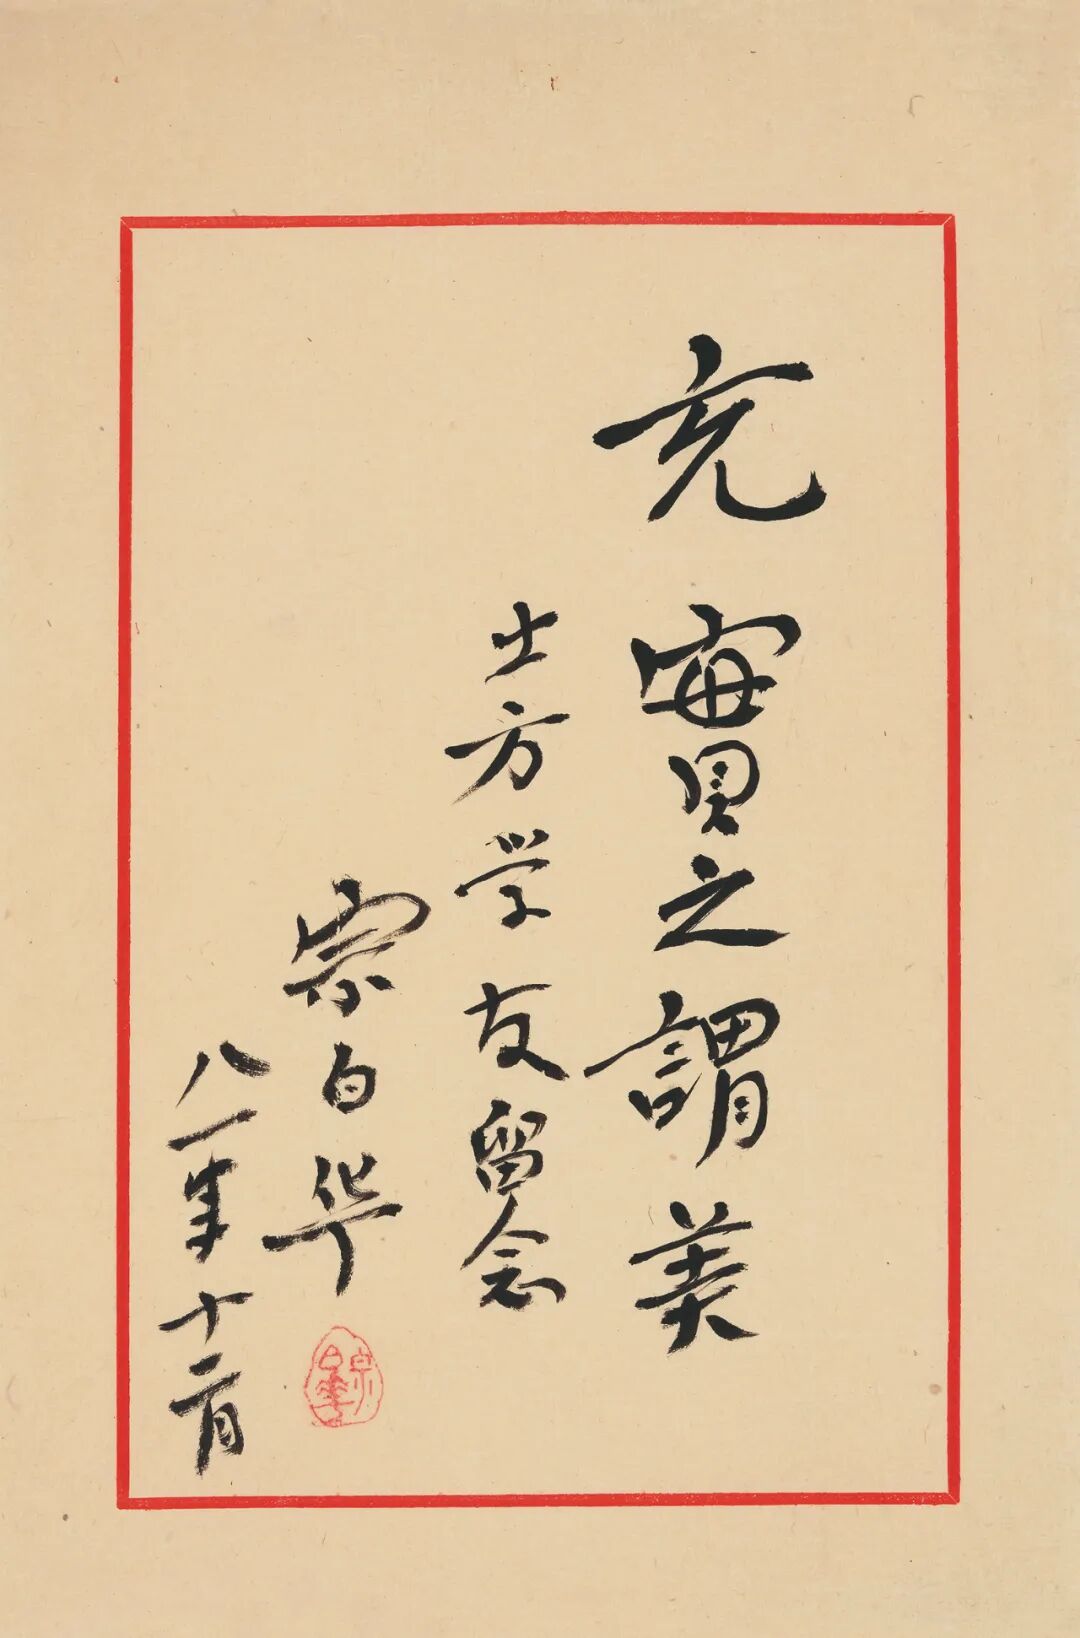 充實之謂美
士方学友留念
宗白华
八一年十二月
宗白華